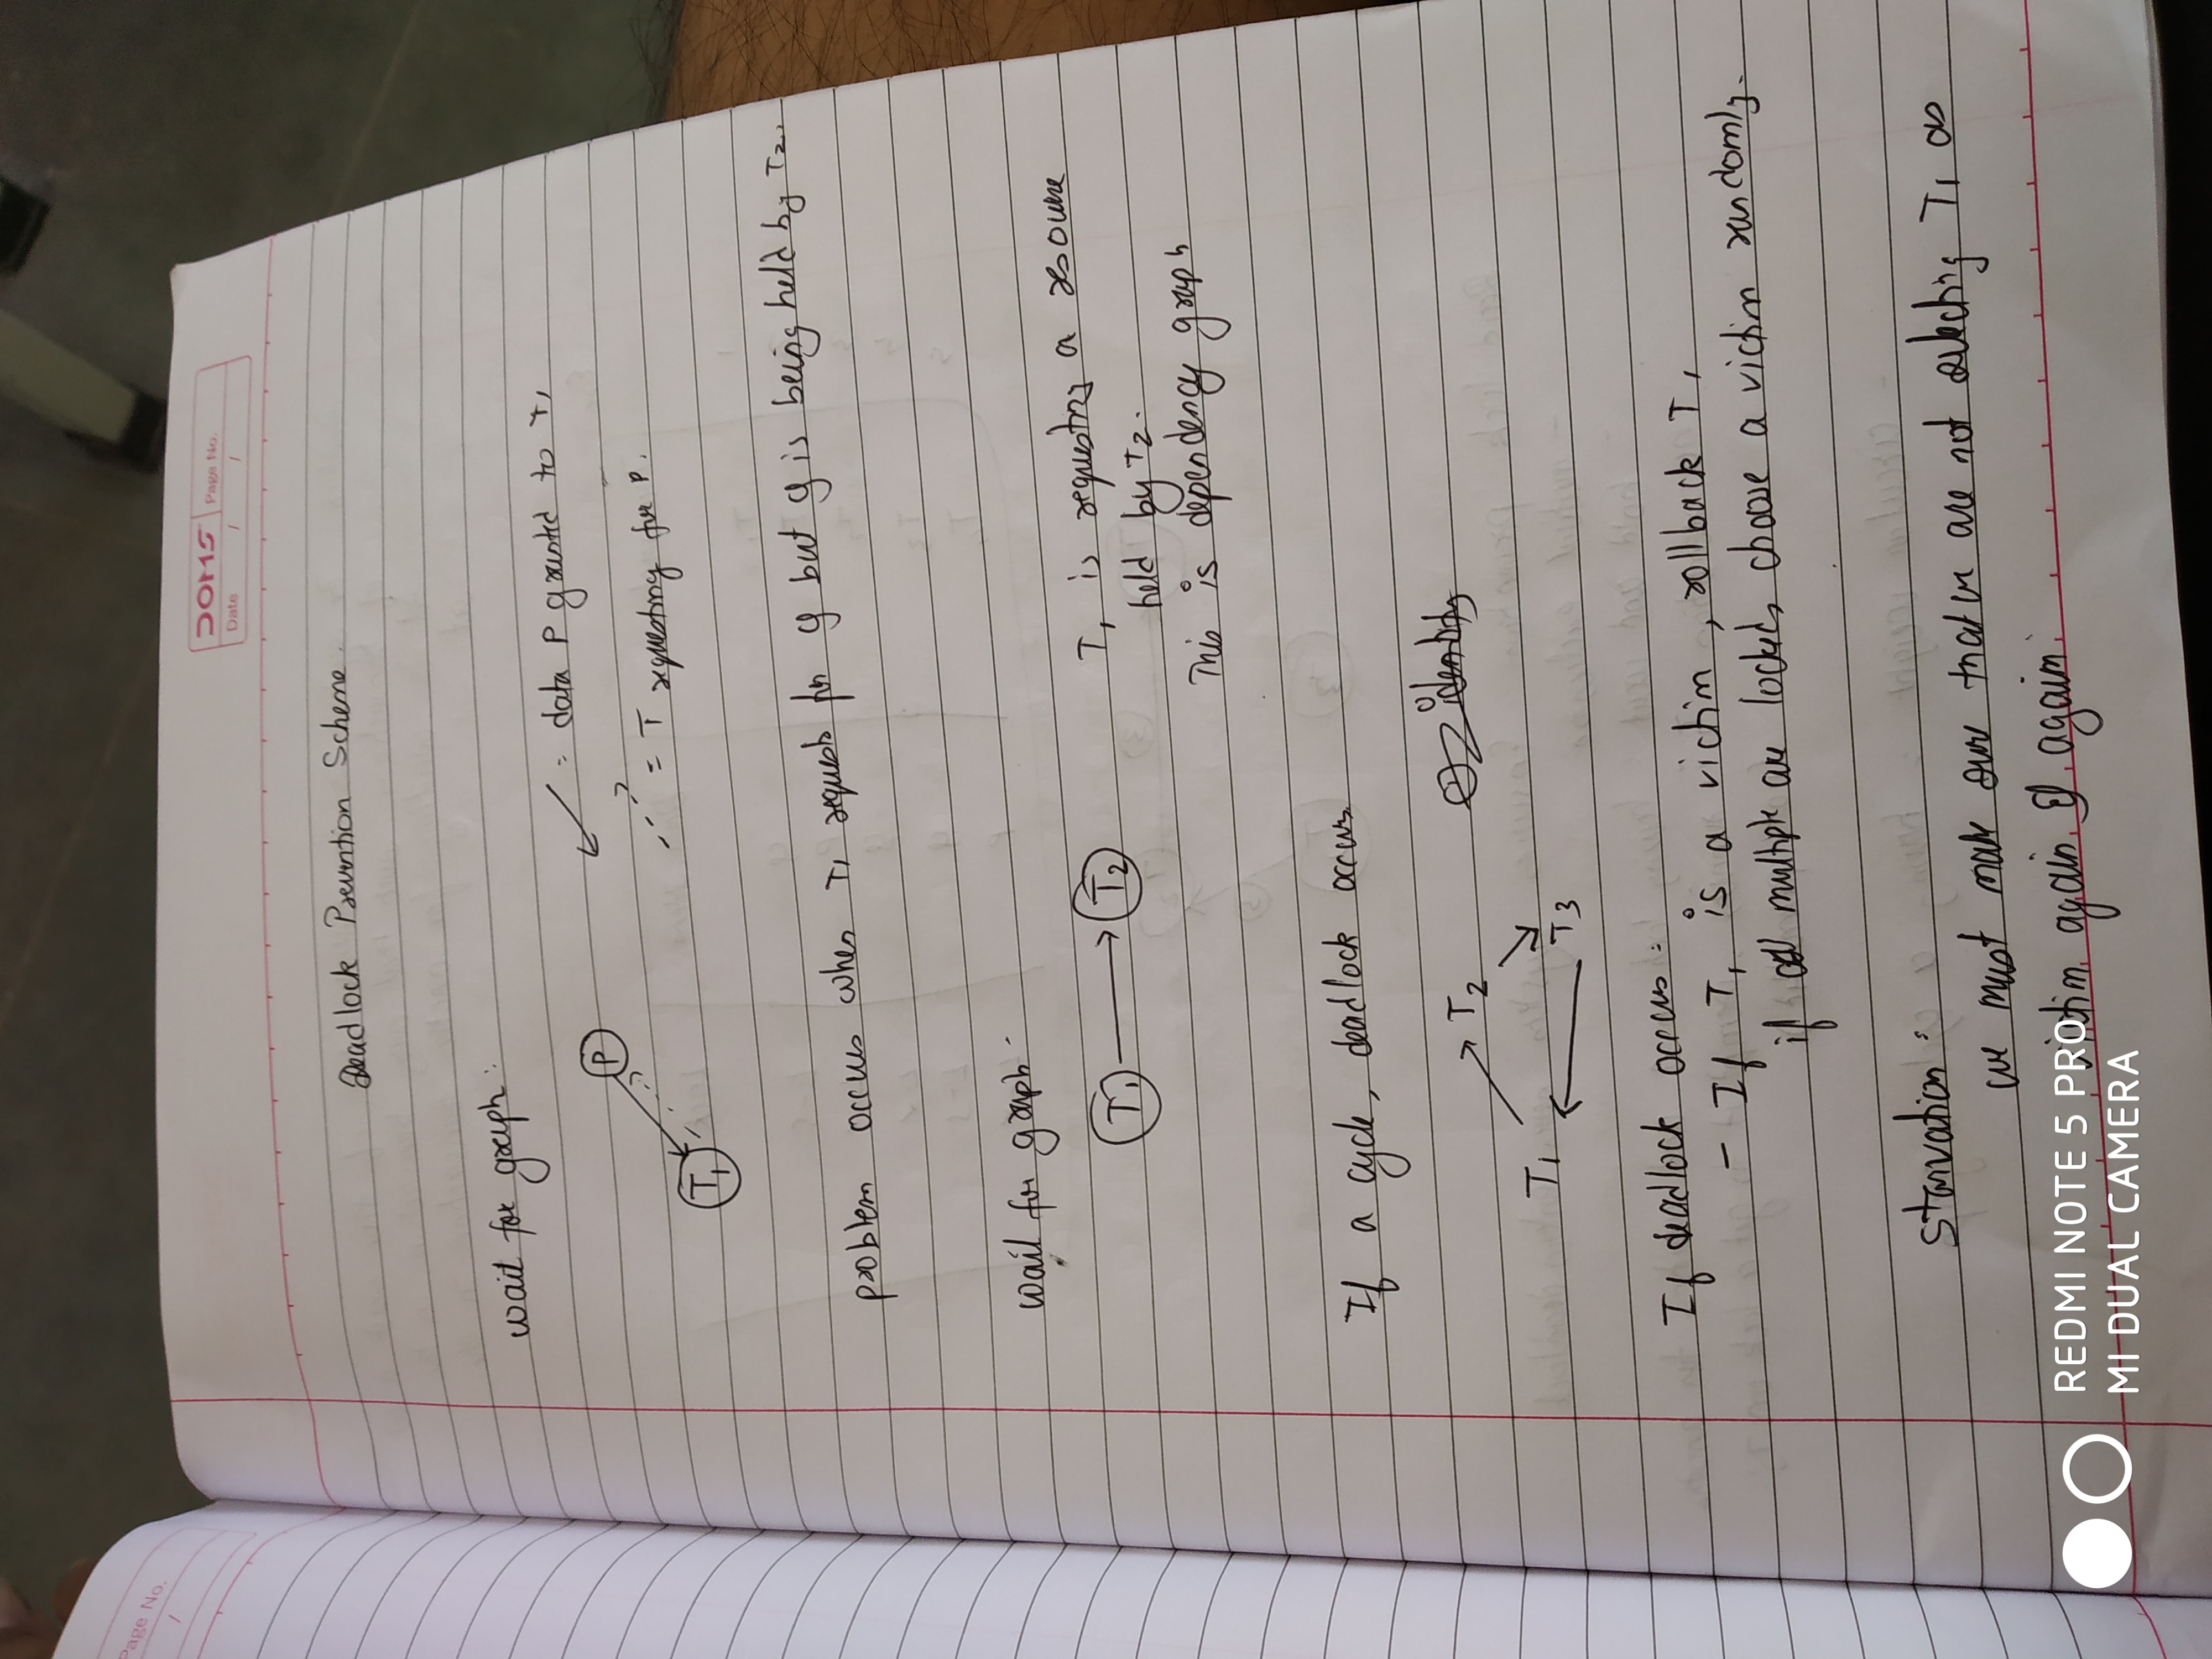 Page No.
/
DOMS Page No.
Date / /
Deadlock Prevention Scheme
wait for graph:
= data P granted to T1
P
= T requesting for P.
T1
problem occurs when T1 requests for q but q is being held by T2.
wait for graph
T1 T2
T1 is requesting a resource
held by T2.
This is dependency graph
If a cycle, deadlock occurs
identify
T2
T1 T3
If deadlock occurs:
- If T1 is a victim, rollback T1
if multiple are locked, choose a victim randomly.
Starvation:
we must make sure that we are not selecting T1 as
victim again & again.
REDMI NOTE 5 PRO
MI DUAL CAMERA